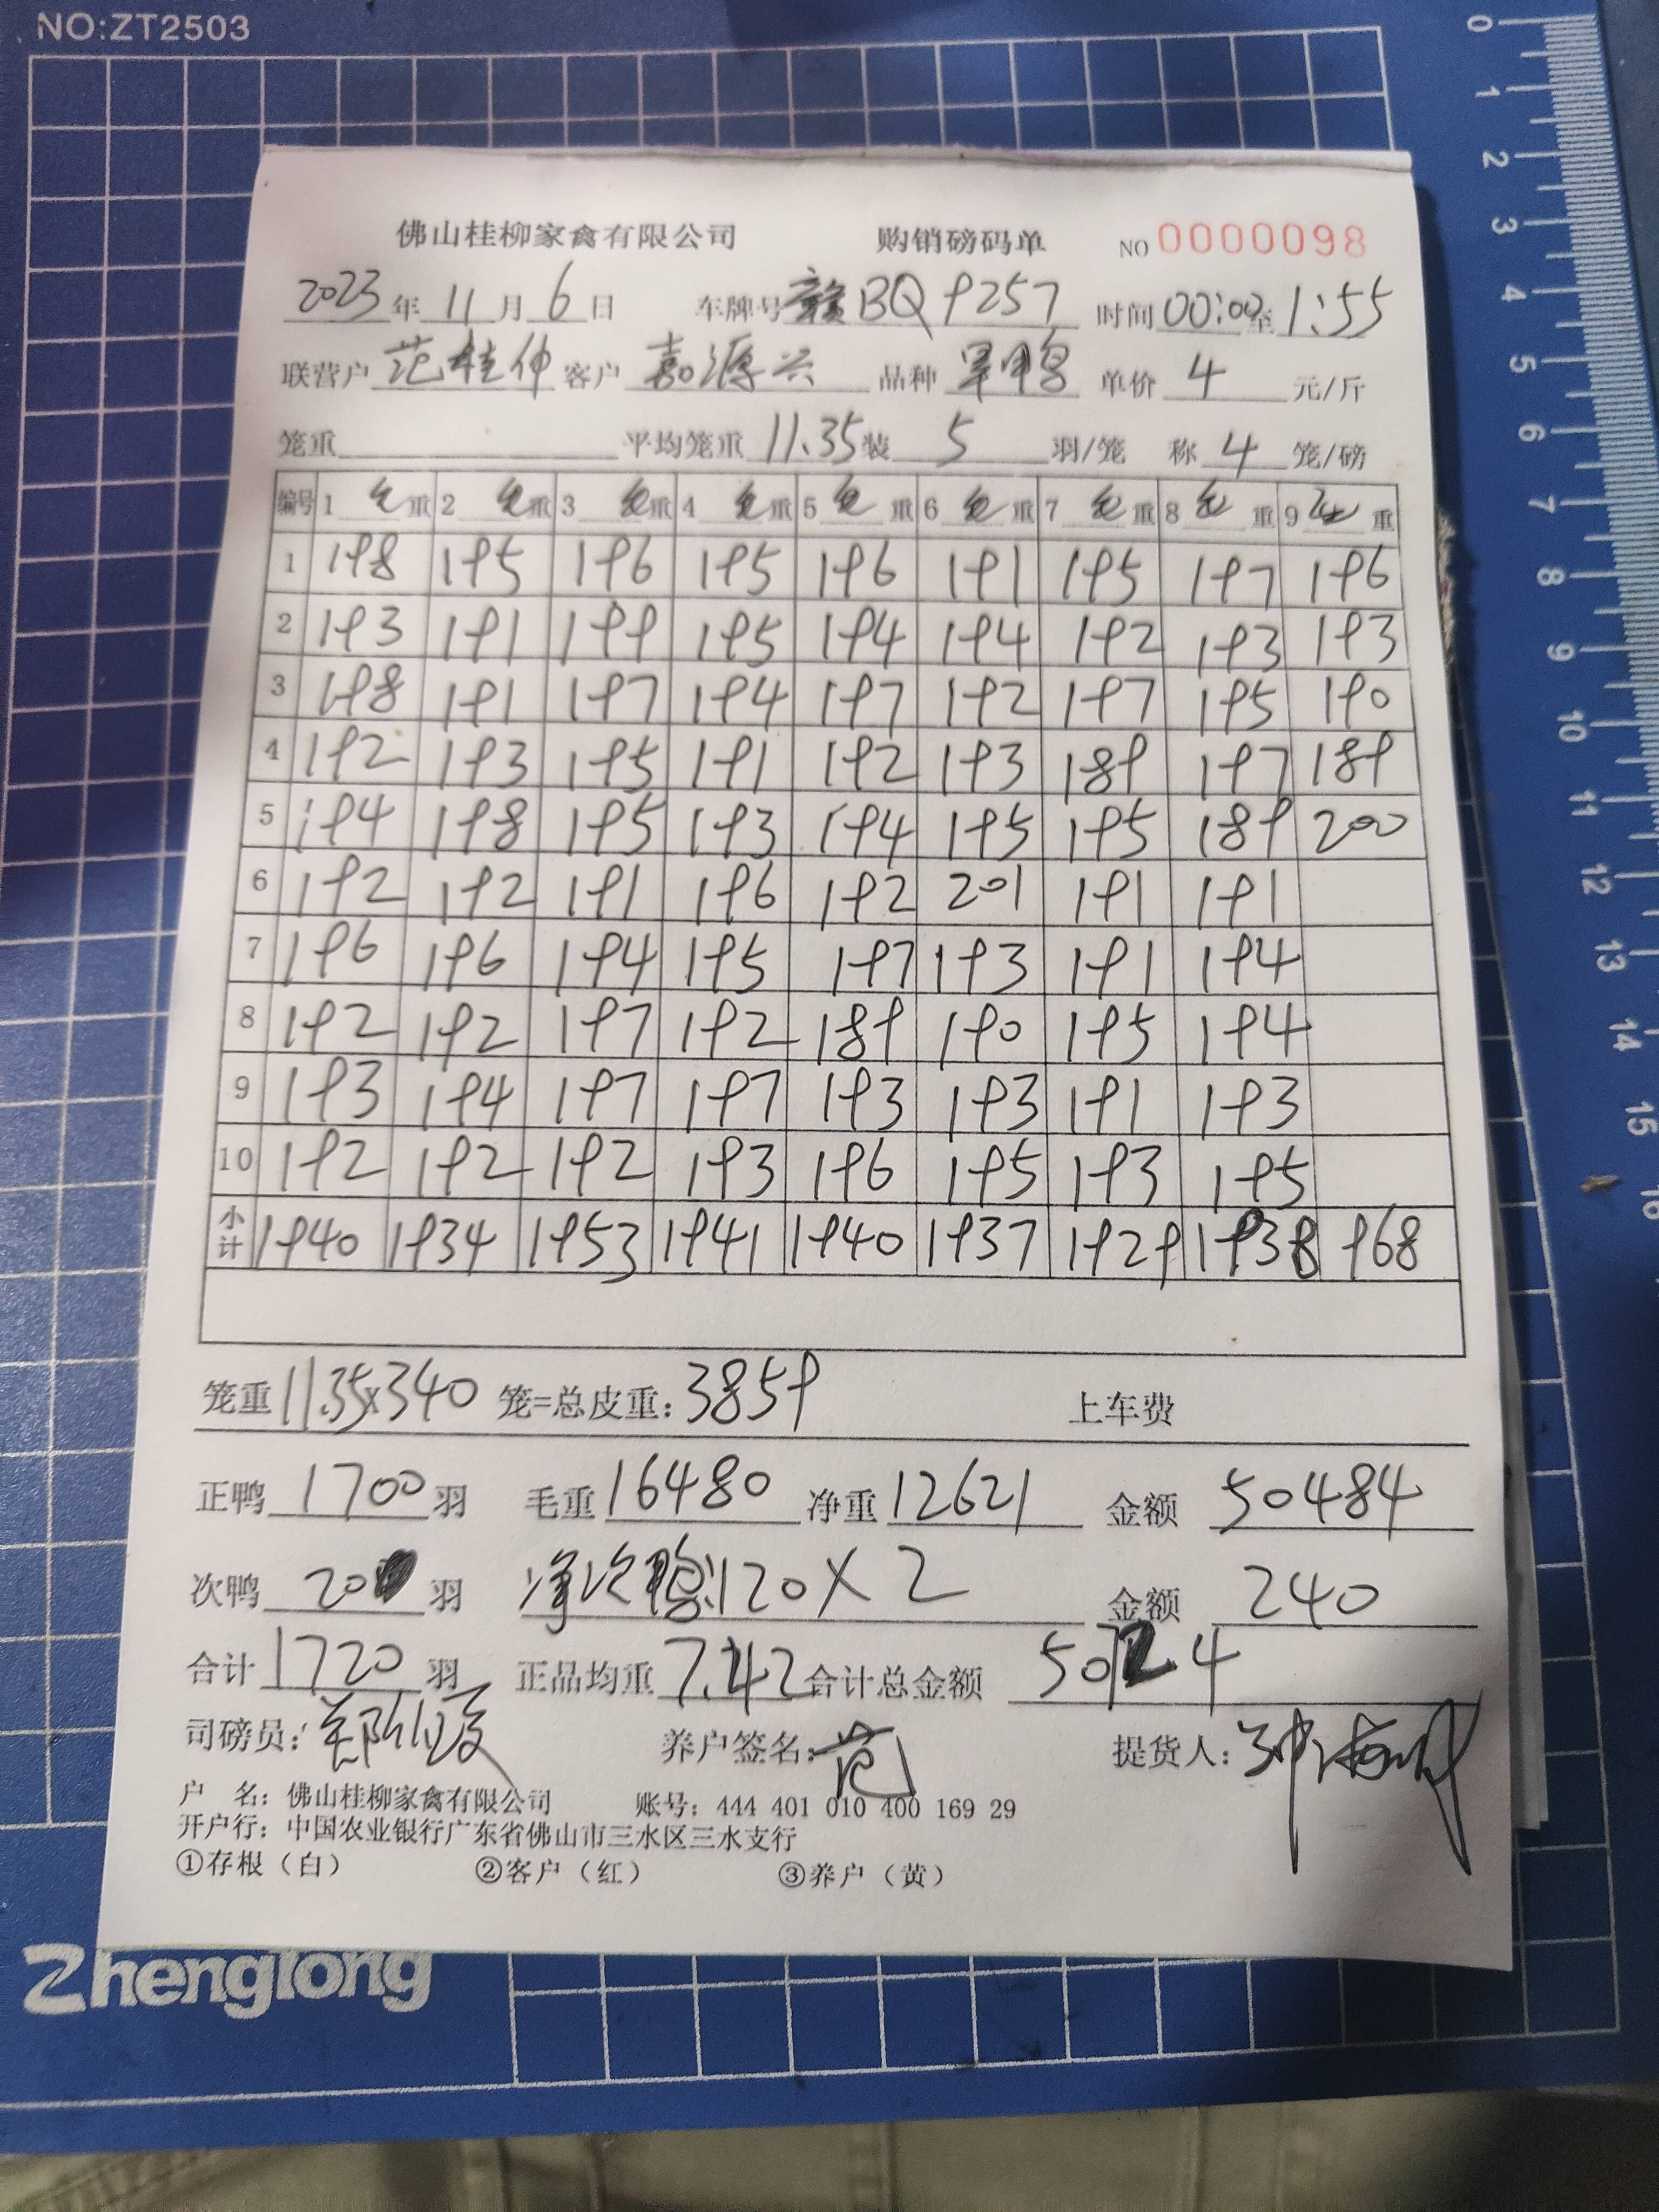 NO:ZT2503
佛山桂柳家禽有限公司 购销磅码单 NO 0000098
2023年11月6日 车牌号赣BQ9257 时间00:00至1:55
联营户范桂伸 客户嘉源兴 品种 单价4元/斤
笼重 平均笼重11.35装5羽/笼 称4笼/磅
编号 1毛重 2毛重 3毛重 4毛重 5毛重 6毛重 7毛重 8毛重 9毛重
1 198 195 196 195 196 191 195 197 196
2 193 191 199 195 194 194 192 193 193
3 198 191 197 194 197 192 197 195 190
4 192 193 195 191 192 193 189 197 189
5 194 198 195 193 194 195 195 189 200
6 192 192 191 196 192 201 191 191
7 196 196 194 195 197 193 191 194
8 192 192 197 192 189 190 195 194
9 193 194 197 197 193 193 191 193
10 192 192 192 193 196 195 193 195
小计 1940 1934 1953 1941 1940 1937 1929 1938 968
笼重11.35×340笼=总皮重:3859 上车费
正鸭1700羽 毛重16480 净重12621 金额50484
次鸭20羽 净次鸭:120×2 金额240
合计1720羽 正品均重7.42 合计总金额50724
司磅员: 养户签名:范 提货人:
户 名:佛山桂柳家禽有限公司 账号:444 401 010 400 169 29
开户行:中国农业银行广东省佛山市三水区三水支行
①存根(白) ②客户(红) ③养户(黄)
Zhenglong
0
1
2
3
4
5
6
7
8
9
10
11
12
13
14
15
16